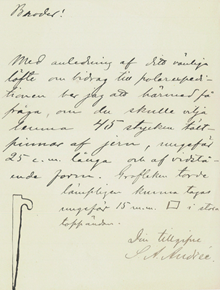 Broder!
Med anledning af ditt vänliga
löfte om bidrag till polarexpedi-
tionen ber jag att härmed få
fråga, om du skulle vilja
lemna 415 stycken tält-
pinnar af jern, ungefär
25 c.m. långa och af vidstå-
ende form. Grofleken torde
lämpligen kunna tagas
ungefär 15 m.m. i stora
Din tillgifne
S. A. Andrée.